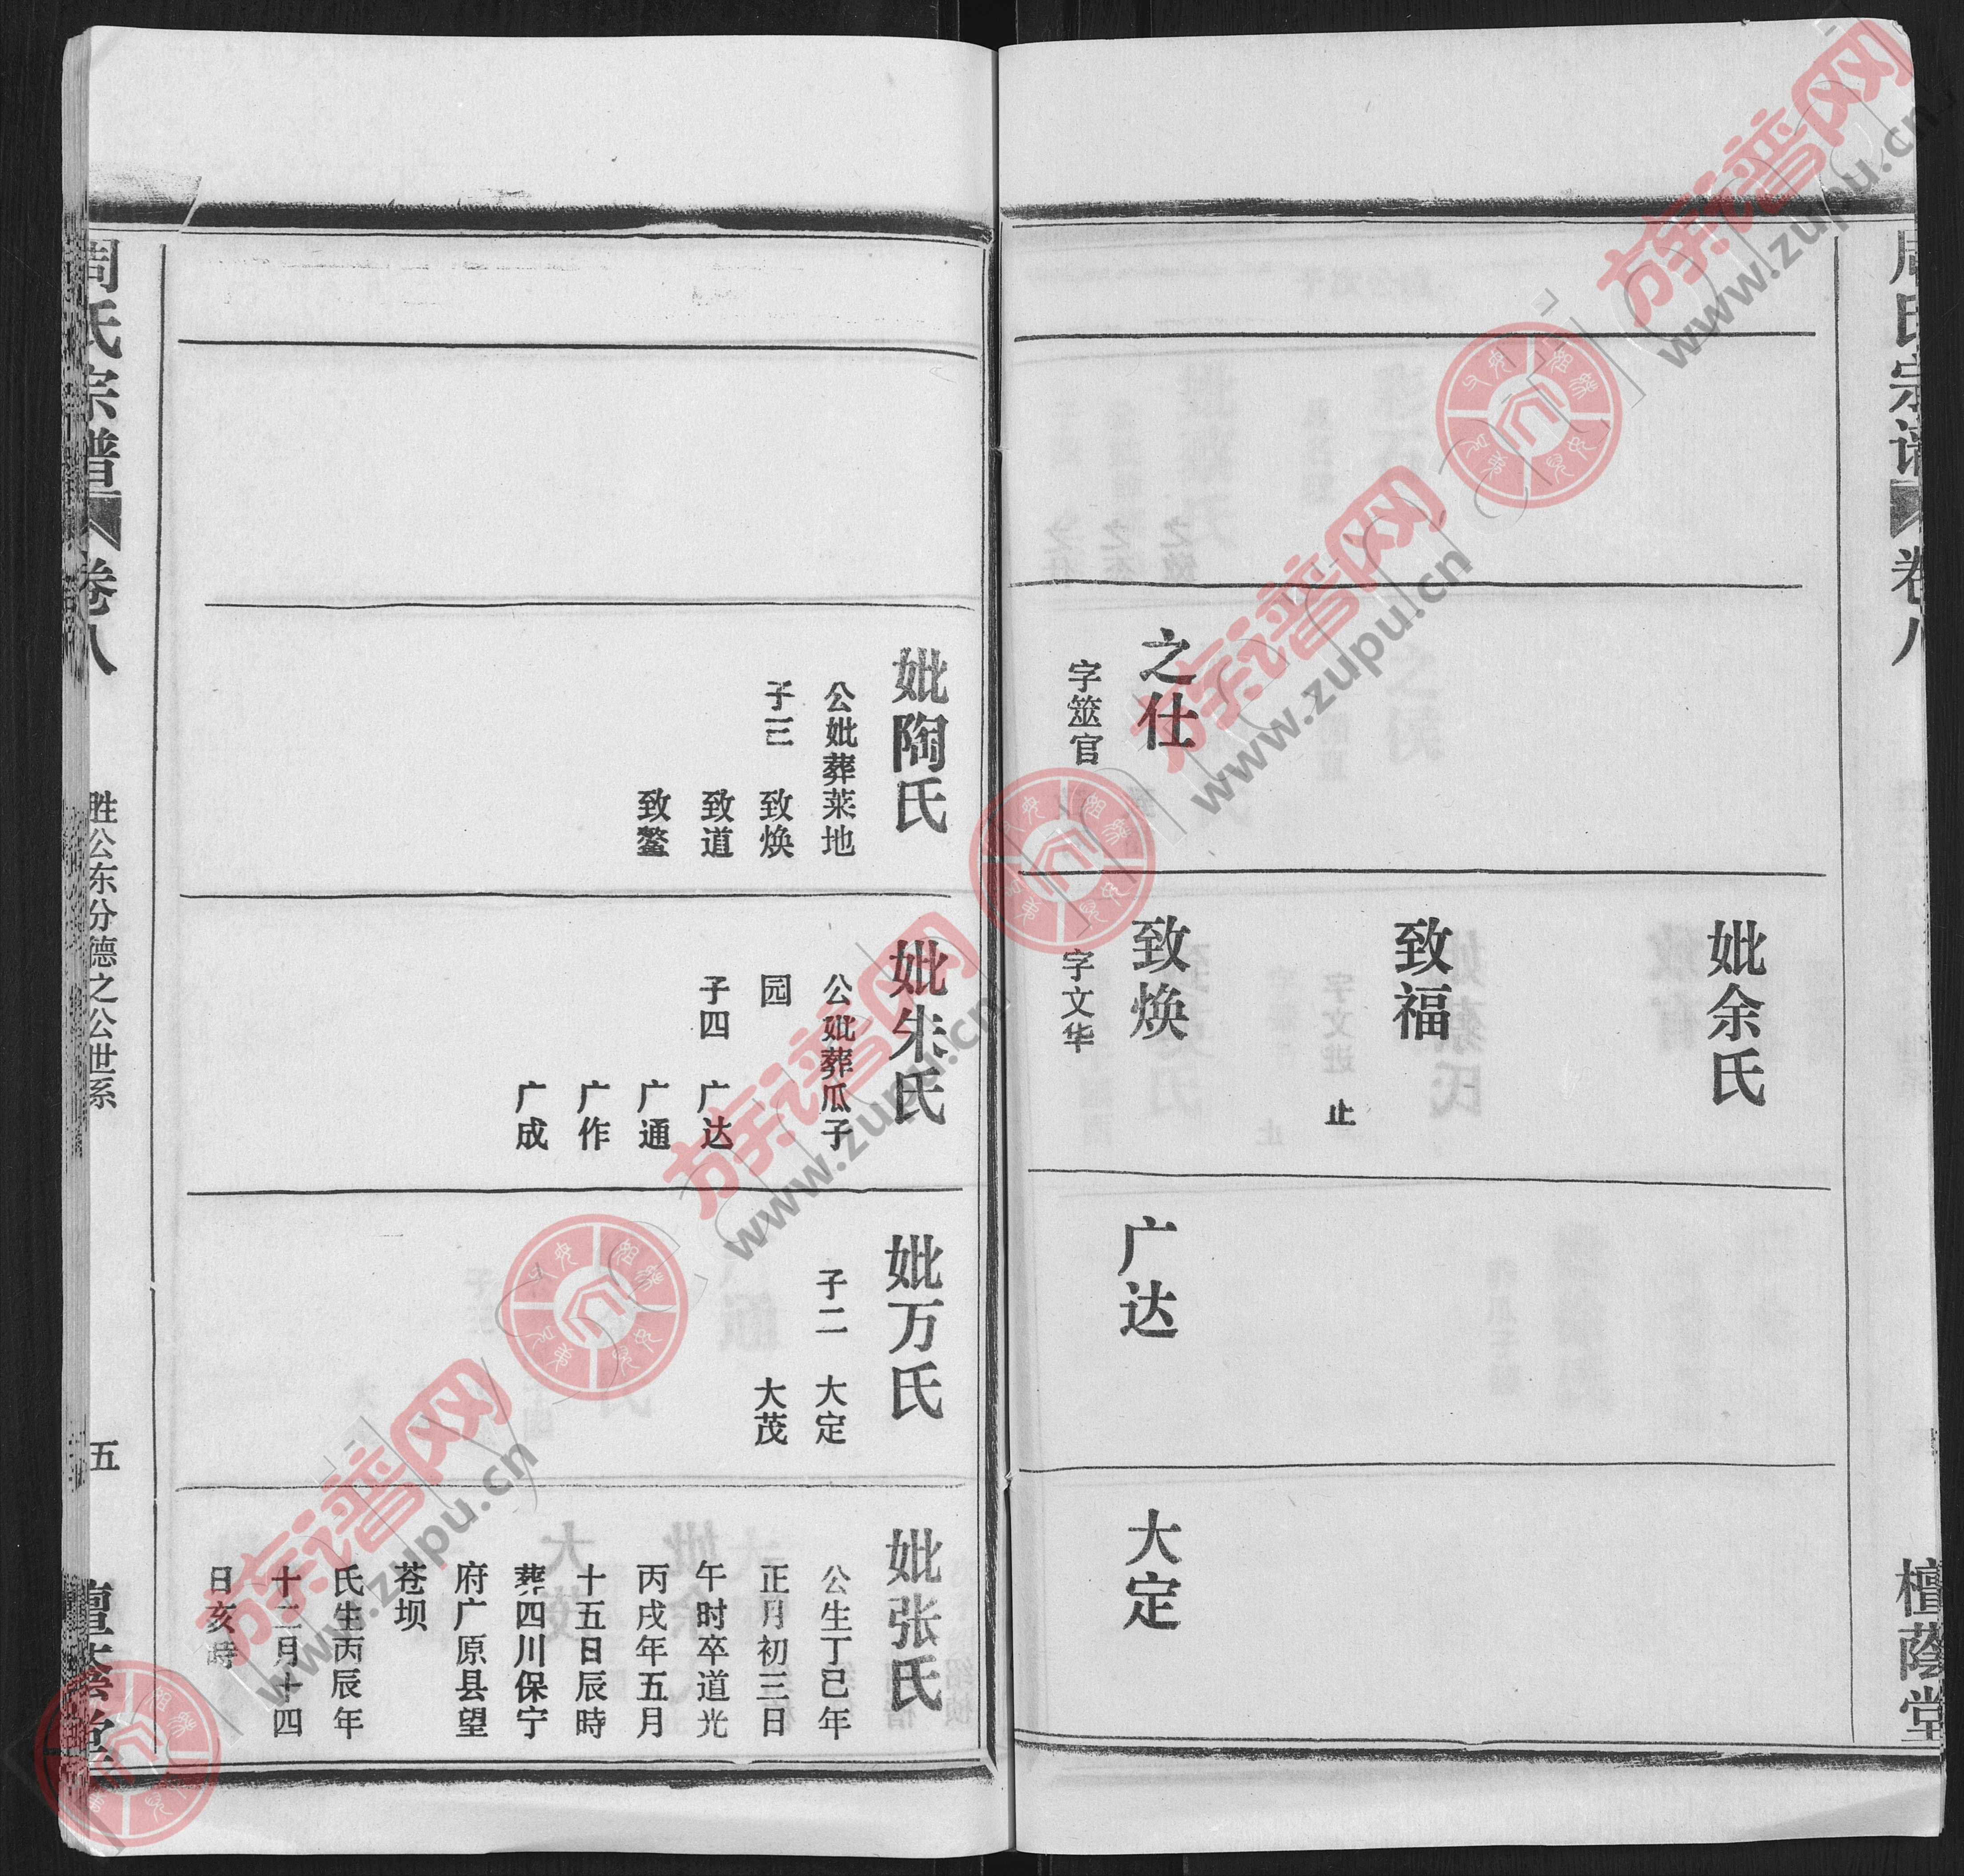 周氏宗谱
卷八
檀蔭堂
之仕
字筮官
妣余氏
致福
字文进
止
致焕
字文华
广达
大定
妣陶氏
公妣葬菜地
子三 致焕
致道
致鳌
妣朱氏
公妣葬瓜子
园
子四 广达
广通
广作
广成
妣万氏
子二 大定
大茂
妣张氏
公生丁己年
正月初三日
午时卒道光
丙戌年五月
十五日辰時
葬四川保宁
府广原县望
苍坝
氏生丙辰年
十二月十四
日亥時
周氏宗譜
卷八
胜公东分德之公世系
五
檀蔭堂
族谱网
www.zupu.cn
族谱网
www.zupu.cn
族谱网
www.zupu.cn
族谱网
www.zupu.cn